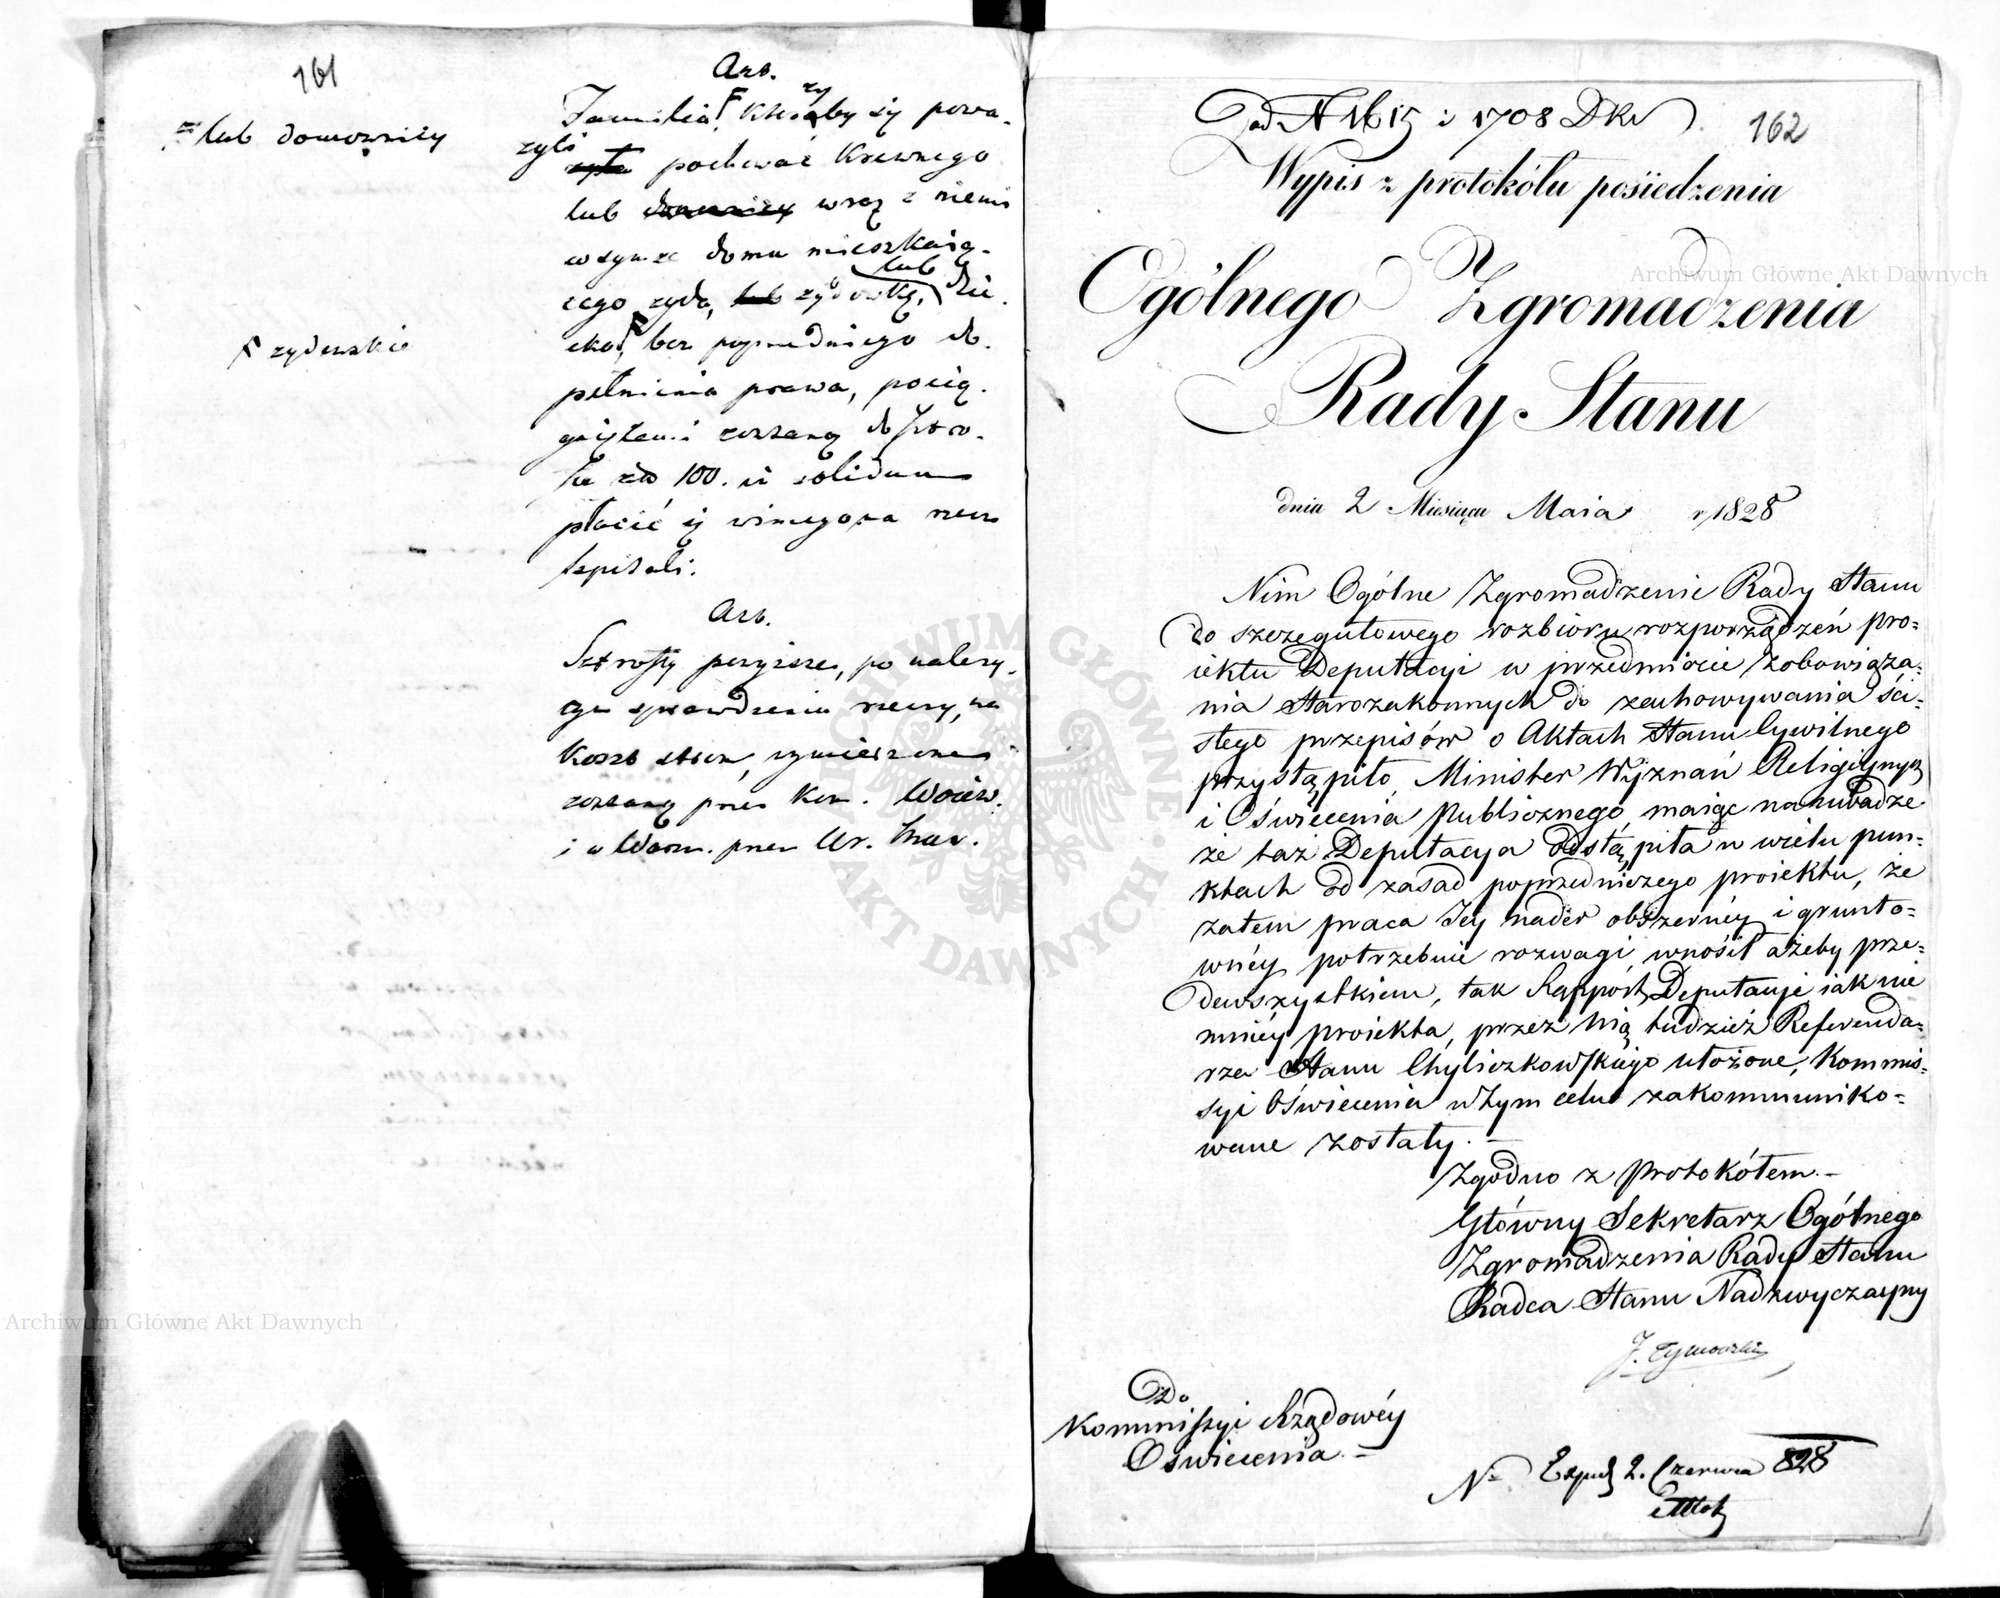 161
Art.
Familia, którzyby się powa-
= lub domownicy
żyli pochować krewnego
lub domownicy wraz z niemi
w tymże domu mieszkaią-
cego żyda, lub żydowkę, lub dzie-
cko, bez poprzedniego do-
F żydowskie
pełnienia prawa, pocią-
gnięłemi zostaną do sztro-
fu złł 100. in solidum
płacić się winnego na rzecz
szpitali.
Art.
Sztrofy powyższe, po należy-
tym sprawdzeniu rzeczy, na
koszt stron, wymierzone
zostaną przez Kom. Woiew.
i w Warsz. przez Ur. Mun.
162
ad N 1615 i 1708 DKr
Wypis z protokółu posiedzenia
Ogólnego Zgromadzenia
Rady Stanu
dnia 2 Miesiąca Maia r. 1828
Nim Ogólne Zgromadzenie Rady Stanu
do szczegułowego rozbioru rozporządzeń pro=
iektu Deputacyi w przedmiocie zobowiąza=
nia Starozakonnych do zachowywania ści=
słego przepisów o Aktach Stanu Cywilnego
przystąpiło, Minister Wyznań Religiynych
i Oświecenia Publicznego, maiąc na uwadze
że taż Deputacya odstąpiła w wielu pun=
ktach od zasad poprzedniczego proiektu, że
zatem praca Jey nader obszerney i grunto=
wney potrzebuie rozwagi, wnosił ażeby prze=
dewszystkiem, tak Rapport Deputacyi iak nie
mniéy proiekta, przez Nią tudzież Referenda=
rza Stanu Chyliczkowskiego ułożone, Kommis=
syi Oświecenia w tym celu zakommuniko=
wane zostały. —
Zgodno z Protokółem. —
Główny Sekretarz Ogólnego
Zgromadzenia Rady Stanu
Radca Stanu Nadzwyczayny
J. Tymowski
Do
Kommissyi Rządowéy
Oświecenia. =
N= Exped 2. Czerwca 828